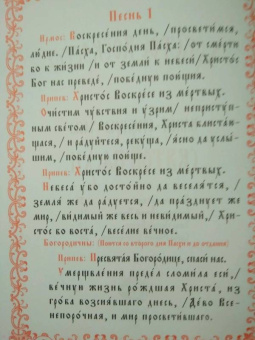 Песнь 1
Ирмос: Воскресе́ния день, /просвети́мся,
лю́дие. /Па́сха, Госпо́дня Па́сха: /от сме́рти
бо к жи́зни /и от земли́ к небеси́ /Христо́с
Бог нас преведе́, /побе́дную пою́щия.
Припев: Христо́с Воскре́се из ме́ртвых.
Очи́стим чу́вствия и у́зрим/ непристу́п-
ным све́том/ Воскресе́ния, Христа́ блиста́ю-
щася, / и ра́дуйтеся, реку́ща, /я́сно да услы́-
шим, /побе́дную пою́ще.
Припев: Христо́с Воскре́се из ме́ртвых.
Небеса́ у́бо досто́йно да веселя́тся, /
земля́ же да ра́дуется, /да пра́зднует же
мир, /ви́димый же весь и неви́димый,/ Хри-
сто́с бо воста́, /весе́лие ве́чное.
Богородичны: (Поются со второго дня Пасхи и до отдания)
Припев: Пресвята́я Богоро́дице, спаси́ нас.
Умерщвле́ния преде́л сломи́ла еси́, /
ве́чную жизнь ро́ждшая Христа́, из
гро́ба возсия́вшаго днесь, /Де́во Все-
непоро́чная, /и мир просвети́вшаго.